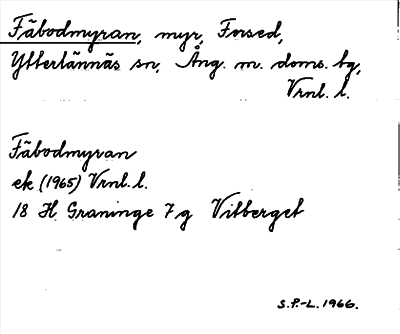 Fäbodmyran, myr, Forsed,
Ytterlännäs sn, Ång. m. doms. bg,
Vrnl. l.
Fäbodmyran
ek (1965) Vrnl. l.
18 H Graninge 7 g Vitberget
S.P.-L. 1966.